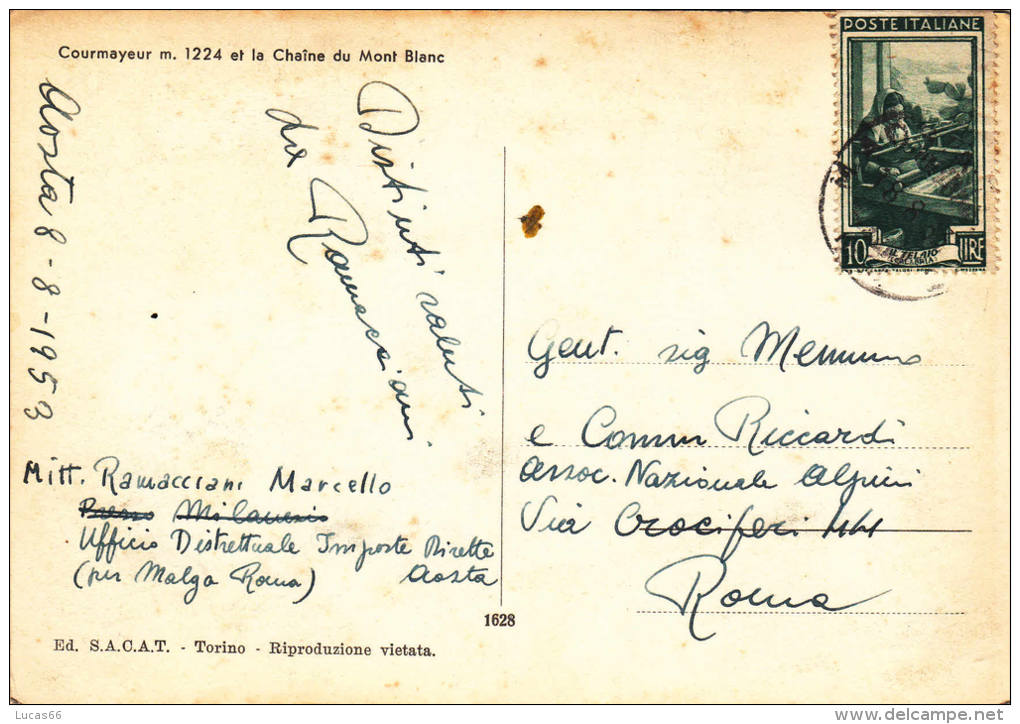 Courmayeur m. 1224 et la Chaîne du Mont Blanc
Aosta 8-8-1953
Distinti saluti
da Ramacciani
Mitt. Ramacciani Marcello
Presso Milanesio
Ufficio Distrettuale Imposte Dirette
(per Malga Roma) Aosta
1628
Ed. S.A.C.A.T. - Torino - Riproduzione vietata.
POSTE ITALIANE
10 LIRE
IL TELAIO
(CALABRIA)
Gent. sig
e Comm Riccardi
Assoc. Nazionale Alpini
Via Crociferi 44
Roma
Lucas66
http://www.delcampe.net